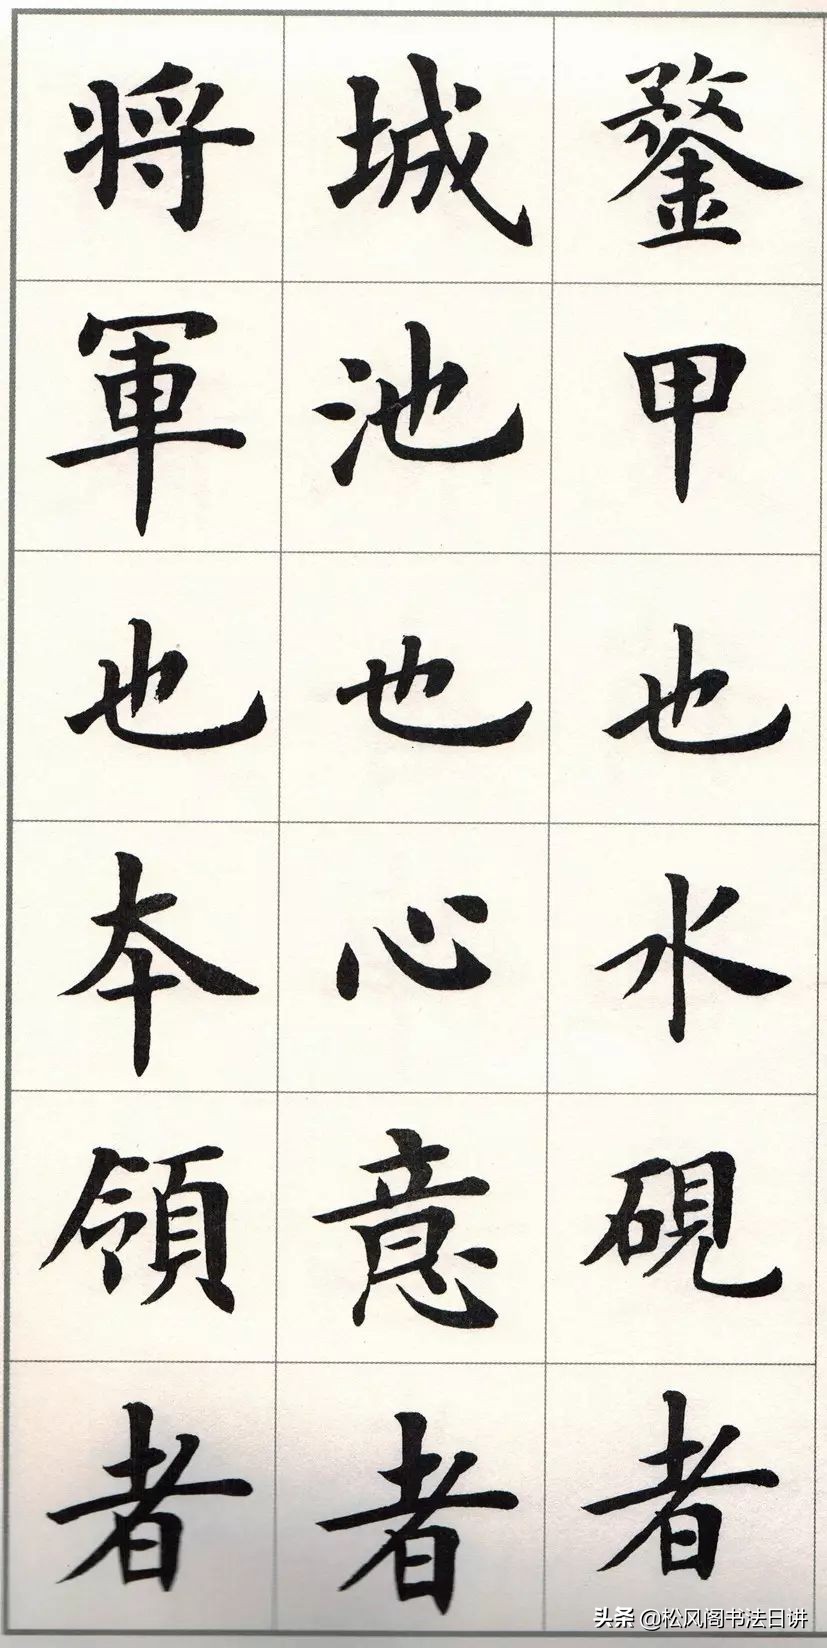 鍪甲也水硯者
城池也心意者
将軍也本領者
头条 @松风阁书法日讲